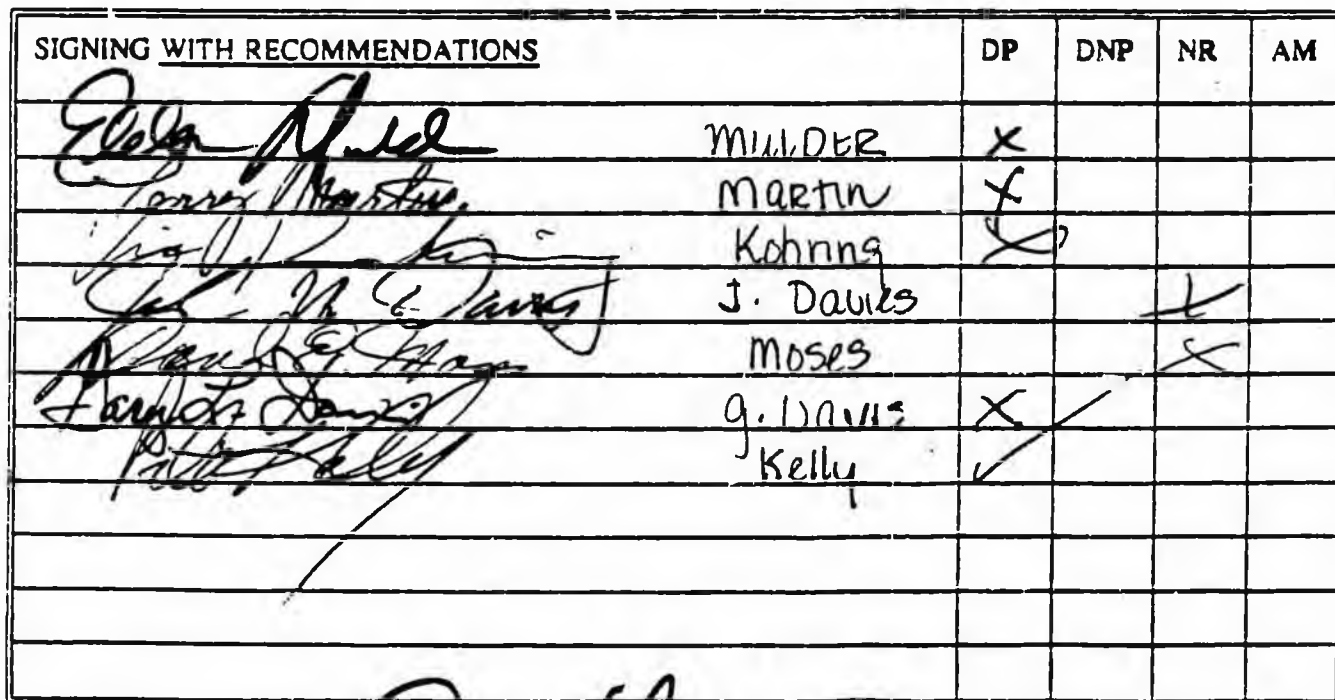 SIGNING WITH RECOMMENDATIONS DP DNP NR AM
MULDER X
Terry Martin MARTIN X
Kohring X
J. Davies X
Moses X
G. DAVIS X
Kelly ✓